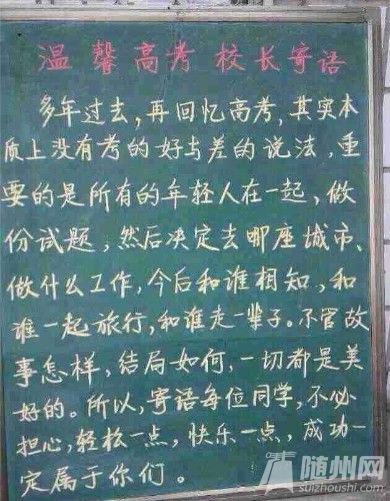 温馨高考 校长寄语
多年过去，再回忆高考，其实本
质上没有考的好与差的说法，重
要的是所有的年轻人在一起，做
份试题，然后决定去哪座城市、
做什么工作，今后和谁相知、和
谁一起旅行，和谁走一辈子。不管故
事怎样，结局如何，一切都是美
好的。所以，寄语每位同学，不必
担心，轻松一点，快乐一点，成功一
定属于你们。
随州网
suizhoushi.com